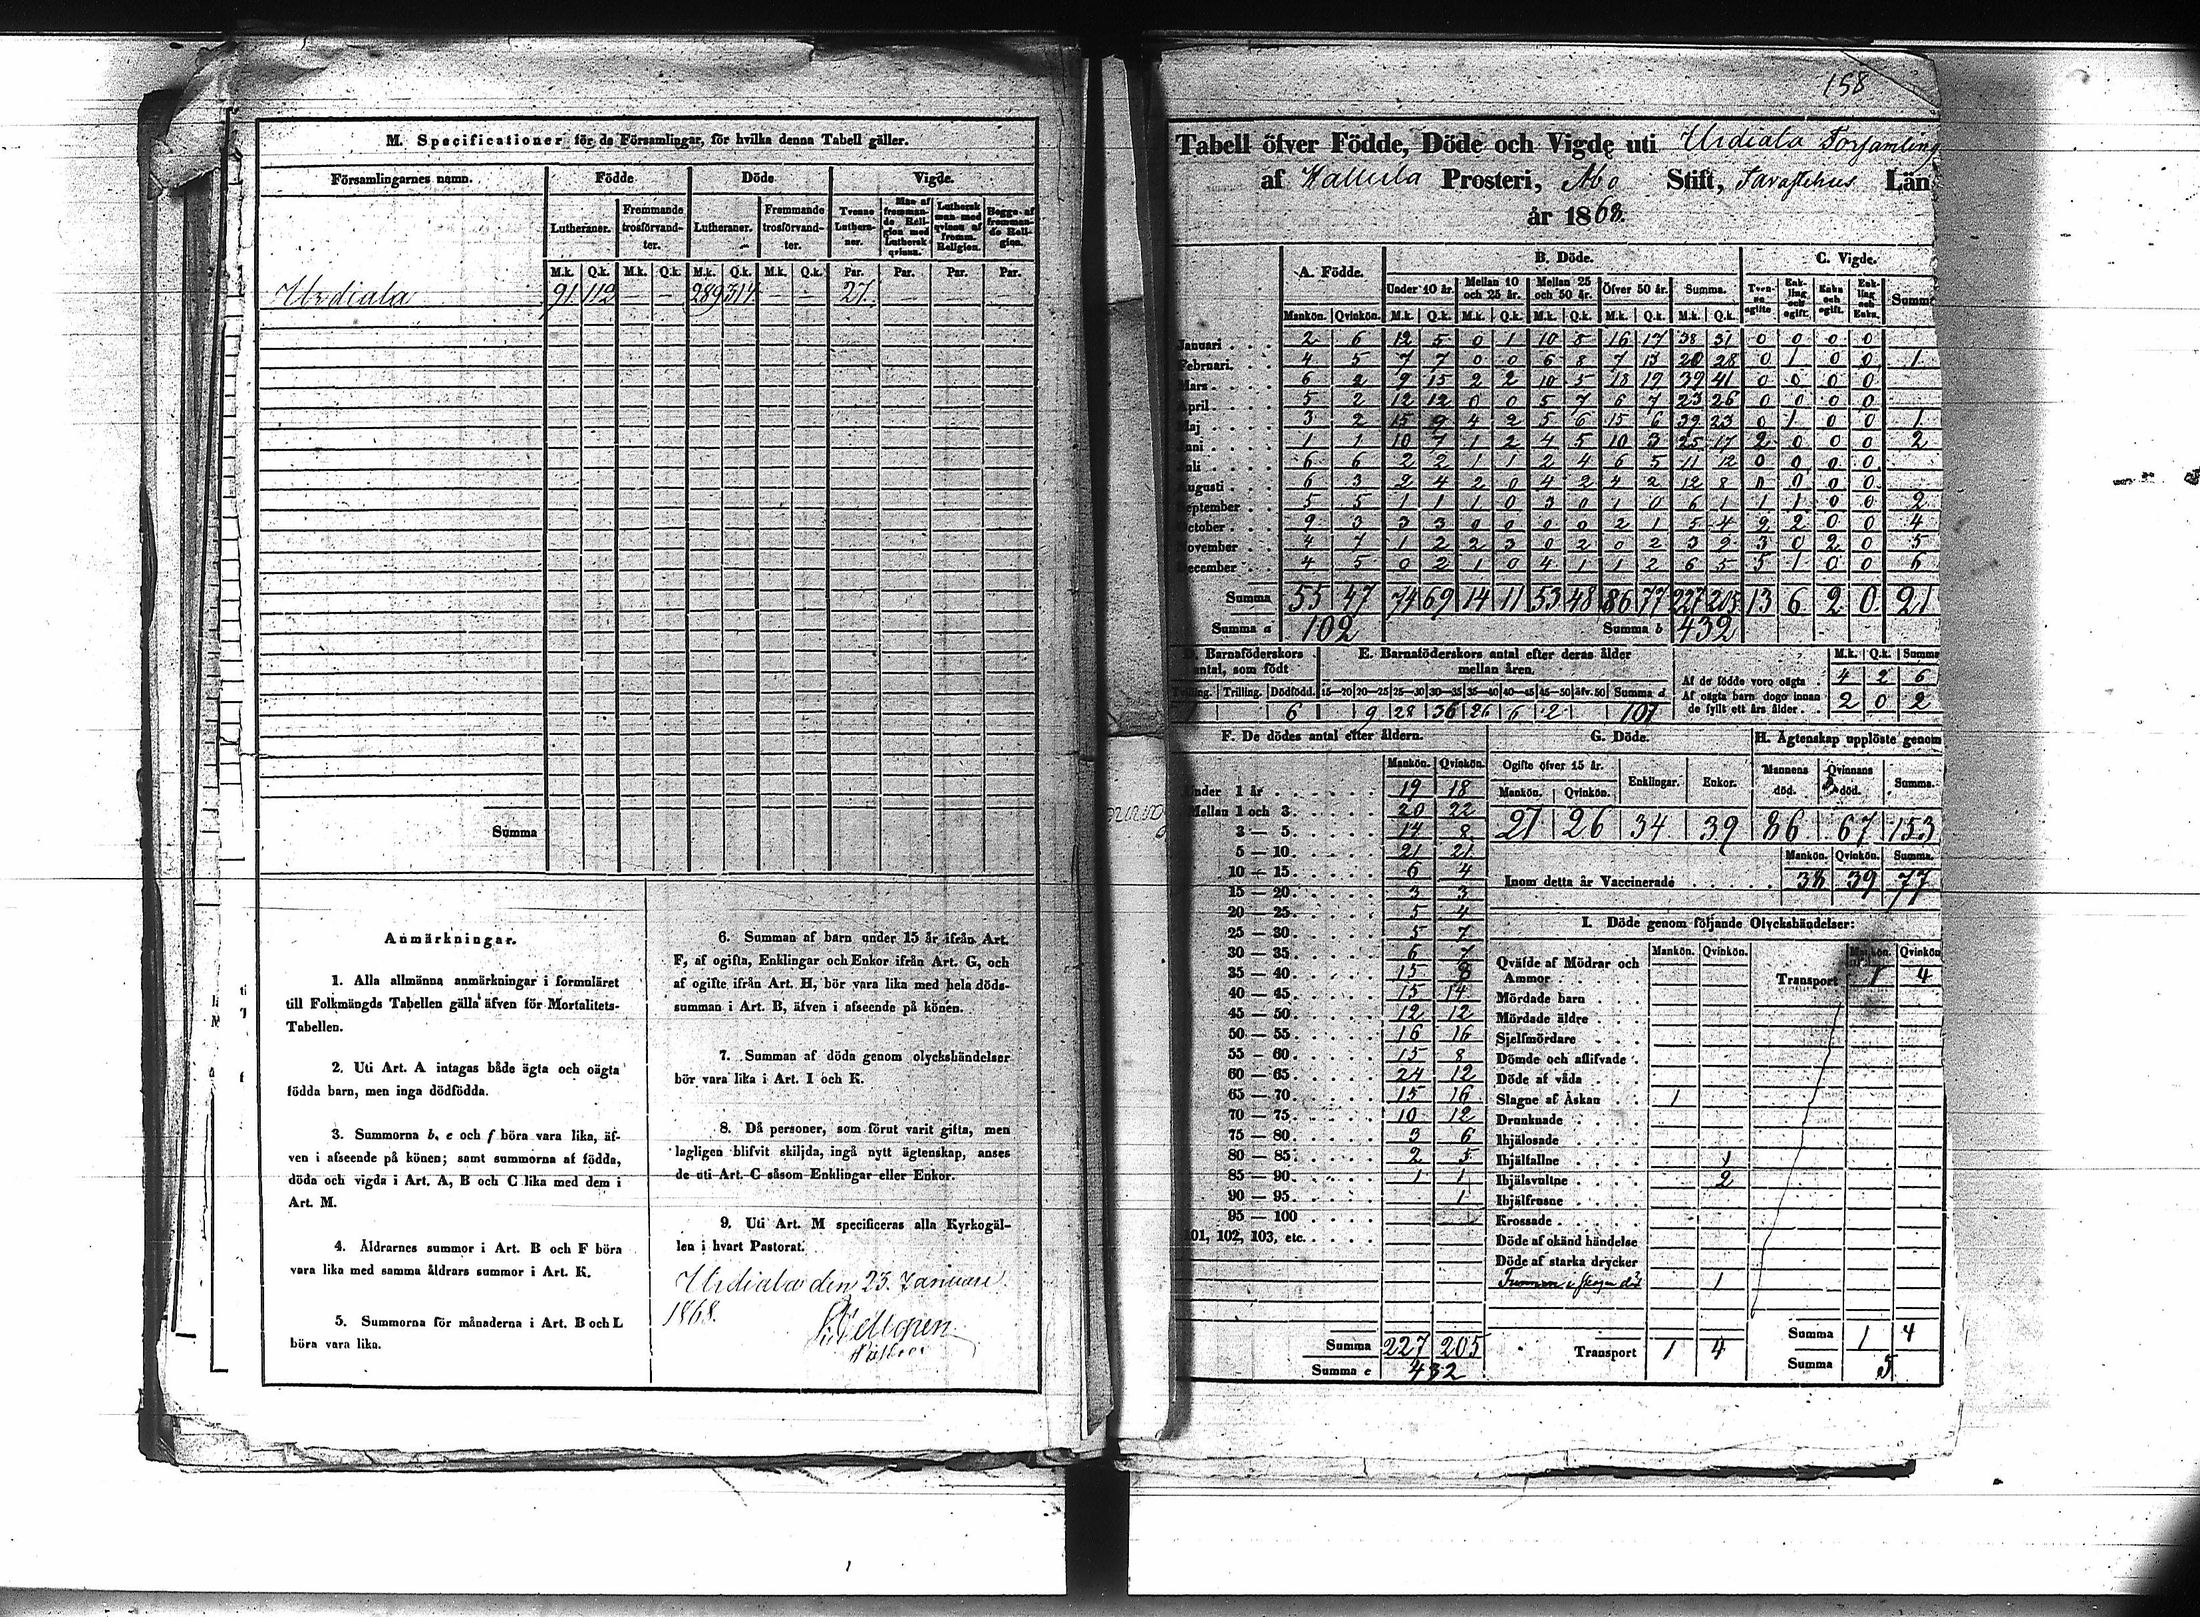 M. Specificationer för de Församlingar, för hvilka denna Tabell gäller.
Församlingarnes namn. Födde Döde Vigde.
Lutheraner. Fremmande trosförvandter. Lutheraner. Fremmande trosförvandter. Tvenne Lutheraner. Man af fremmande Religion med Luthersk qvinna. Luthersk man med qvinna af fremm. Religion. Begge af fremmande Religion.
M.k. Q.k. M.k. Q.k. M.k. Q.k. M.k. Q.k. Par. Par. Par. Par.
Urdiala 91 112 — — 289 314 — — 27 — — —
Summa
Anmärkningar.
1. Alla allmänna anmärkningar i formuläret
till Folkmängds Tabellen gälla äfven för Mortalitets-
Tabellen.
2. Uti Art. A intagas både ägta och oägta
födda barn, men inga dödfödda.
3. Summorna b, e och f böra vara lika, äf-
ven i afseende på könen; samt summorna af födda,
döda och vigda i Art. A, B och C lika med dem i
Art. M.
4. Åldrarnes summor i Art. B och F böra
vara lika med samma åldrars summor i Art. K.
5. Summorna för månaderna i Art. B och L
böra vara lika.
6. Summan af barn under 15 år ifrån Art.
F, af ogifta, Enklingar och Enkor ifrån Art. G, och
af ogifte ifrån Art. H, bör vara lika med hela döds-
summan i Art. B, äfven i afseende på könen.
7. Summan af döda genom olyckshändelser
bör vara lika i Art. I och K.
8. Då personer, som förut varit gifta, men
lagligen blifvit skiljda, ingå nytt ägtenskap, anses
de uti Art. C såsom Enklingar eller Enkor.
9. Uti Art. M specificeras alla Kyrkogäl-
len i hvart Pastorat.
Urdiala den 23. Januari
1868.
158
Tabell öfver Födde, Döde och Vigde uti Urdiala Församling
af Prosteri, Åbo Stift, Tavastehus Län
år 1868.
A. Födde. B. Döde. C. Vigde.
Under 10 år. Mellan 10 och 25 år. Mellan 25 och 50 år. Öfver 50 år. Summa. Tvenne ogifte Enkling och ogift. Enka och ogift. Enkling och Enka. Summa
Mankön. Qvinkön. M.k. Q.k. M.k. Q.k. M.k. Q.k. M.k. Q.k. M.k. Q.k.
Januari 2 6 12 5 0 1 10 8 16 17 38 31 0 0 0 0
Februari. 4 5 7 7 0 0 6 8 7 13 20 28 0 1 0 0 1
Mars 6 2 9 15 2 2 10 5 18 19 39 41 0 0 0 0
April 5 2 12 12 0 0 5 7 6 7 23 26 0 0 0 0
Maj 3 2 15 9 4 2 5 6 15 6 39 23 0 1 0 0 1
Juni 1 1 10 7 1 2 4 5 10 3 25 17 2 0 0 0 2
Juli 6 6 2 2 1 1 2 4 6 5 11 12 0 0 0 0
Augusti 6 3 2 4 2 0 4 2 4 2 12 8 0 0 0 0
September 5 5 1 1 1 0 3 0 1 0 6 1 1 1 0 0 2
October 9 3 3 3 0 0 0 0 2 1 5 4 2 2 0 0 4
November 4 7 1 2 2 3 0 2 0 2 3 9 3 0 2 0 5
December 4 5 0 2 1 0 4 1 1 2 6 5 5 1 0 0 6
Summa 55 47 74 69 14 11 53 48 86 77 227 205 13 6 2 0 21
Summa a 102 Summa b 432
Barnaföderskors antal, som födt
Trilling. Dödfödd.
6
E. Barnaföderskors antal efter deras ålder mellan åren.
15—20 20—25 25—30 30—35 35—40 40—45 45—50 öfv. 50 Summa d
9 28 36 26 6 2 107
M.k. Q.k. Summa
Af de födde voro oägta 4 2 6
Af oägta barn dogo innan de fyllt ett års ålder 2 0 2
F. De dödes antal efter åldern.
Mankön. Qvinkön.
Under 1 år 19 18
Mellan 1 och 3 20 22
3 — 5 14 8
5 — 10 21 21
10 — 15 6 4
15 — 20 3 3
20 — 25 5 4
25 — 30 5 7
30 — 35 6 7
35 — 40 15 8
40 — 45 15 14
45 — 50 12 12
50 — 55 16 16
55 — 60 15 8
60 — 65 24 12
65 — 70 15 16
70 — 75 10 12
75 — 80 3 6
80 — 85 2 5
85 — 90 1 1
90 — 95 1
95 — 100
101, 102, 103, etc.
Summa 227 205
Summa e 432
G. Döde.
Ogifte öfver 15 år. Enklingar. Enkor.
Mankön. Qvinkön.
27 26 34 39
H. Ägtenskap upplöste genom
Mannens död. Qvinnans död. Summa.
86 67 153
Mankön. Qvinkön. Summa.
Inom detta år Vaccinerade 38 39 77
I. Döde genom följande Olyckshändelser:
Mankön. Qvinkön. Mankön. Qvinkön
Qväfde af Mödrar och Ammor Transport 1 4
Mördade barn
Mördade äldre
Sjelfmördare
Dömde och aflifvade
Döde af våda
Slagne af Åskan 1
Drunknade
Ihjälosade
Ihjälfallne 1
Ihjälsvultne 2
Ihjälfrusne
Krossade
Döde af okänd händelse
Döde af starka drycker
1
Transport 1 4
Summa 1 4
Summa 5